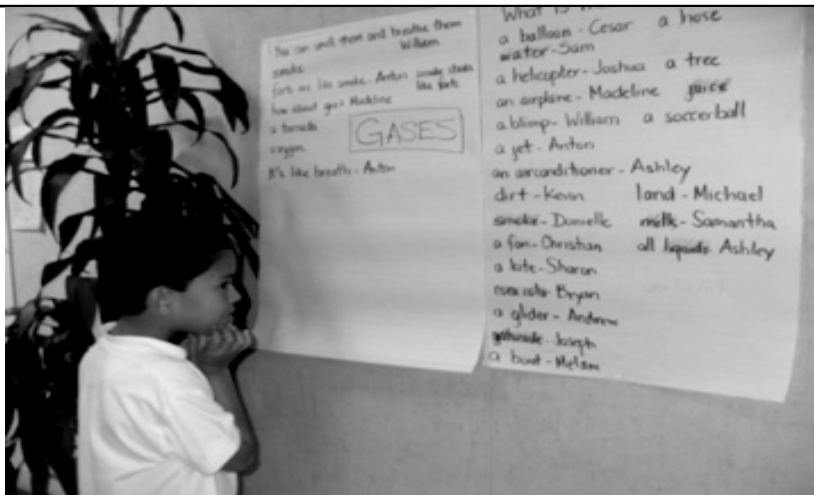 You can smell them and breathe them
William
smoke
farts are like smoke - Anton smoke stinks like farts
how about gas - Madeline
a tornado
oxygen
GASES
It's like breath - Anton
What is
a balloon - Cesar a hose
water - Sam
a helicopter - Joshua a tree
an airplane - Madeline juice
a blimp - William a soccerball
a jet - Anton
an airconditioner - Ashley
dirt - Kevin land - Michael
smoke - Danielle milk - Samantha
a fan - Christian all liquids Ashley
a kite - Sharon
coca cola - Bryan
a glider - Andrew
gatorade - Joseph
a boat - Melani